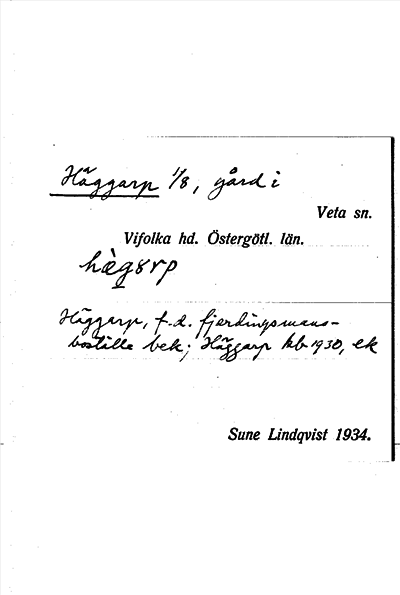 Häggarp 1/8, gård i
Veta sn.
Vifolka hd. Östergötl. län.
hæ̀gərp
Häggarp, f.d. fjerdingsmans-
boställe bek; Häggarp kb 1930, ek
Sune Lindqvist 1934.